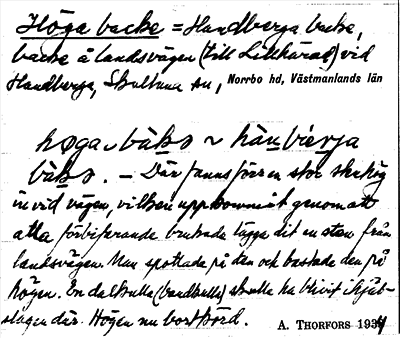 Höga backe = Handberga backe,
backe å landsvägen (till Lillhärad) vid
Handberga, Skultuna sn, Norrbo hd, Västmanlands län
høga bàkə ~ hànbærja
bàkə. – Där fanns förr en stor stenhög
invid vägen, vilken uppkommit genom att
alla förbifarande brukade lägga dit en sten från
landsvägen. Man spottade på den och kastade den på
högen. En dalkulla (bandkulla) skulle ha blivit ihjäl-
slagen där. Högen nu bortkörd.
A. THORFORS 1934